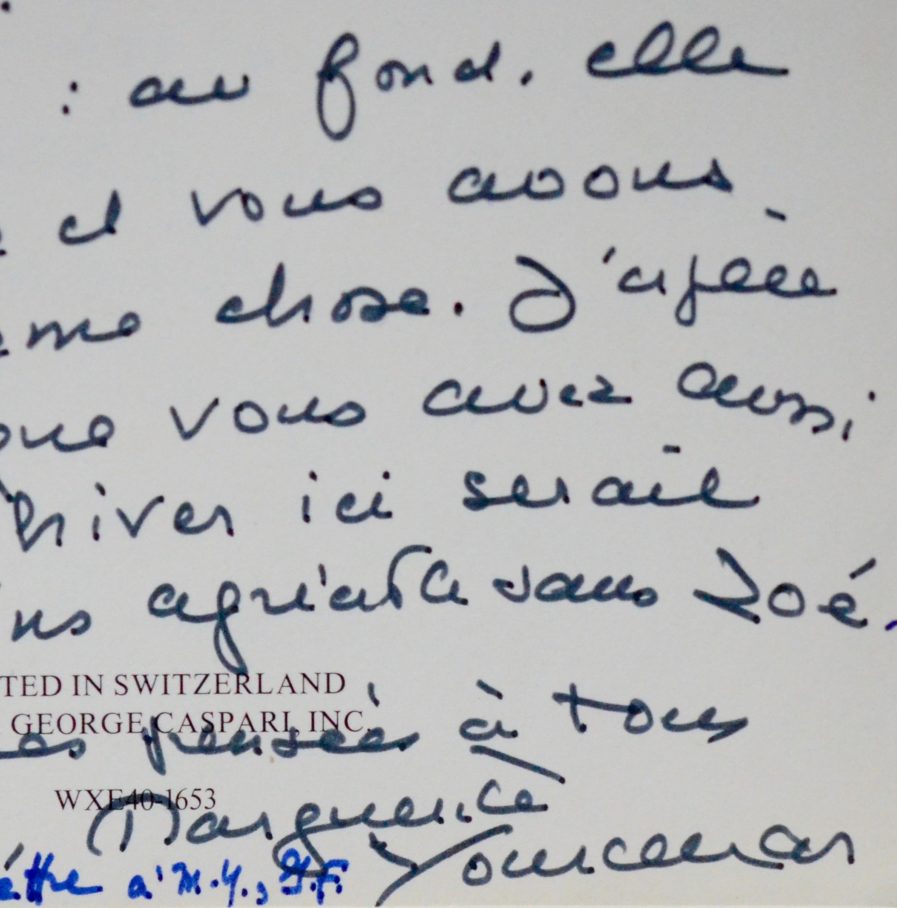 : au fond, elle
et vous avons
me chose. J'espère
que vous avez aussi
hiver ici serait
ns agréable sans Zoé.
TED IN SWITZERLAND
GEORGE CASPARI, INC.
es pensées à tous
WXE40-1653
Marguerite
Yourcenar
ettre à M.Y., Y.F.